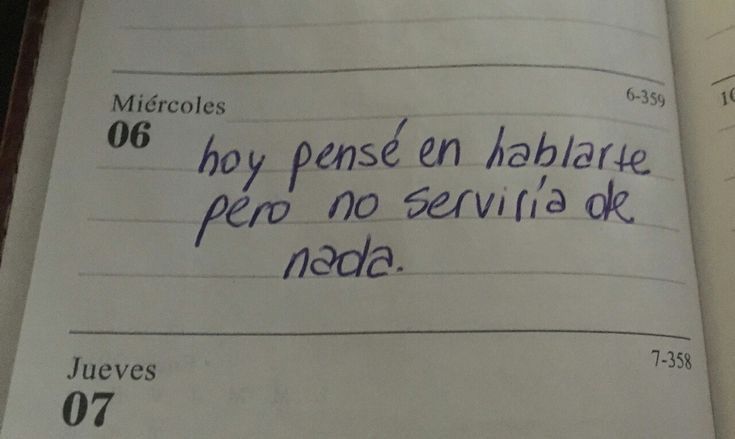 Miércoles 6-359
06
hoy pensé en hablarte
pero no serviría de
nada.
Jueves 7-358
07